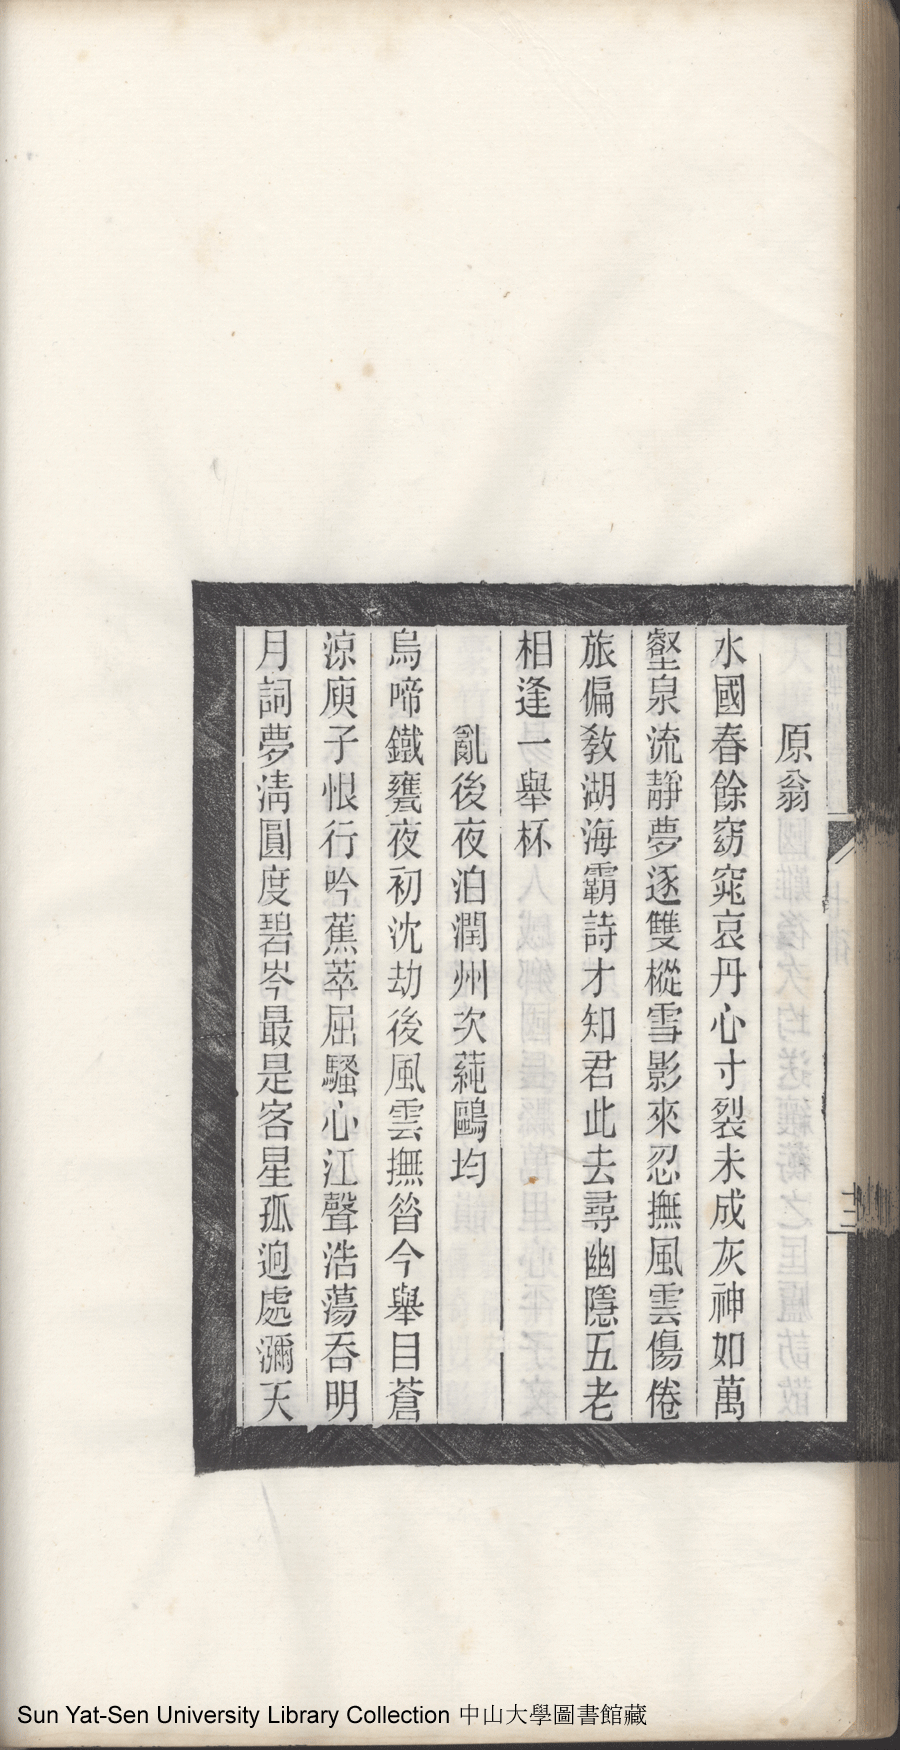 原翁
水國春餘窈窕哀丹心寸裂未成灰神如萬
壑泉流靜夢逐雙樅雪影來忍撫風雲傷倦
旅偏教湖海霸詩才知君此去尋幽隱五老
相逢一舉杯
亂後夜泊潤州次蒓鷗均
烏啼鐵甕夜初沈劫後風雲撫昝今舉目蒼
涼庾子恨行吟蕉萃屈騷心江聲浩蕩吞明
月詞夢淸圓度碧岑最是客星孤迥處瀰天
Sun Yat-Sen University Library Collection 中山大學圖書館藏